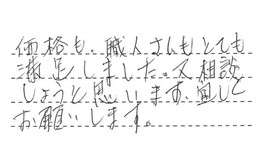 価格も、職人さんもとても
満足しました。又相談
しようと思います。宜しく
お願いします。